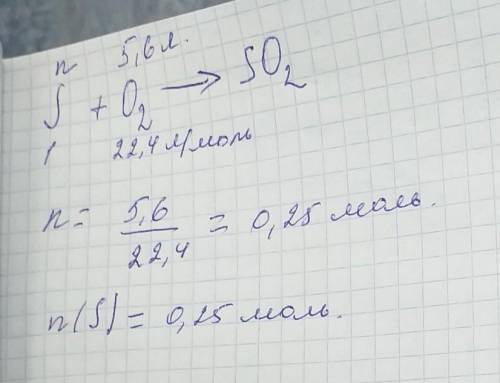 n 5,6 л.
S + O₂ → SO₂
1 22,4 л/моль
n = 5,6/22,4 = 0,25 моль.
n(S) = 0,25 моль.